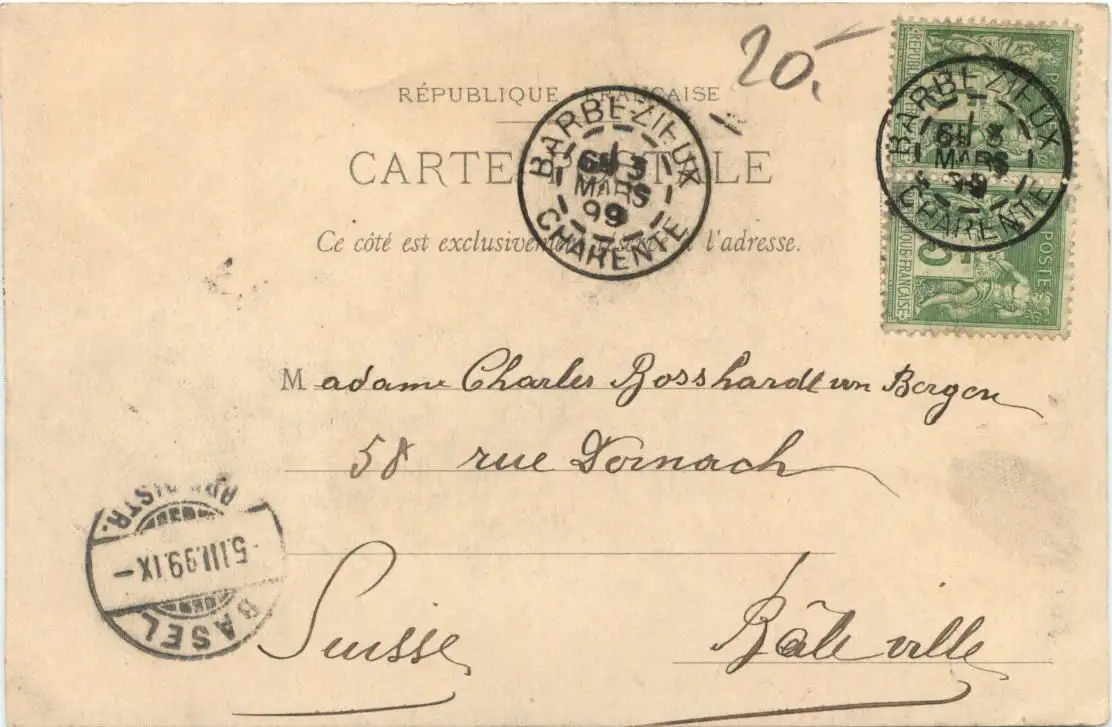 20.-
RÉPUBLIQUE FRANÇAISE
CARTE POSTALE
Ce côté est exclusivement réservé à l'adresse.
BARBEZIEUX
3
MARS
99
CHARENTE
BARBEZIEUX
3
MARS
99
CHARENTE
POSTE
5
RÉPUBLIQUE FRANÇAISE
Madame Charles Bosshardt von Bergen
58 rue Dornach
Suisse Bâle ville
BASEL
-5.III.99.IX-